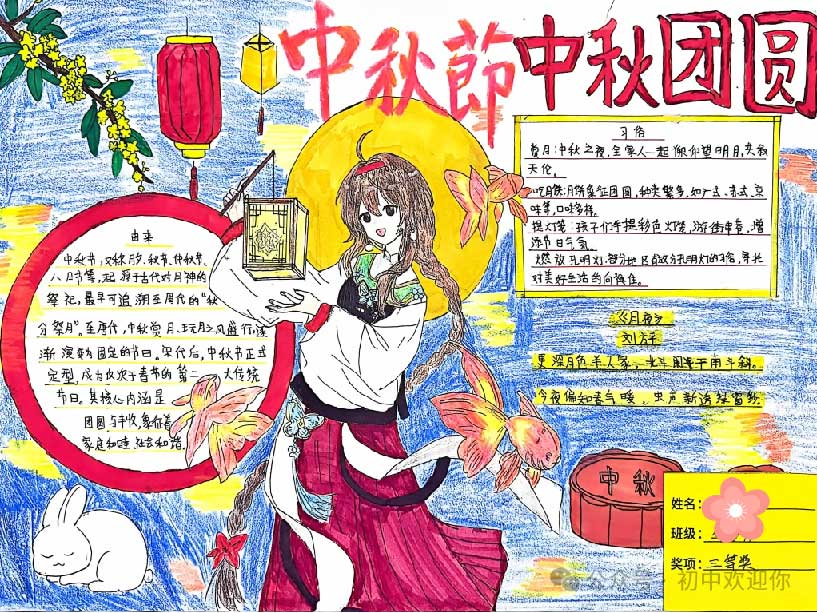 中秋節 中秋团圆
习俗
赏月:中秋之夜,全家人一起仰望明月,共叙
天伦。
吃月饼:月饼象征团圆,种类繁多,如广式、苏式、京
味等,口味多样。
提灯笼:孩子们手提彩色灯笼,游街串巷,增
添节日气氛。
燃放孔明灯:部分地区有放孔明灯的习俗,寄托
对美好生活的向往。
由来
中秋节,又称月夕、秋节、仲秋节、
八月节等,起源于古代对月神的
祭祀,最早可追溯至周代的“秋
分祭月”。至唐代,中秋赏月、玩月之风盛行,逐
渐演变为固定的节日。宋代后,中秋节正式
定型,成为仅次于春节的第二大传统
节日,其核心内涵是
团圆与丰收,象征着
家庭和睦、社会和谐。
《月夜》
刘方平
更深月色半人家,北斗阑干南斗斜。
今夜偏知春气暖,虫声新透绿窗纱
中秋
姓名:
班级:
奖项:三等奖
公众号·初中欢迎你